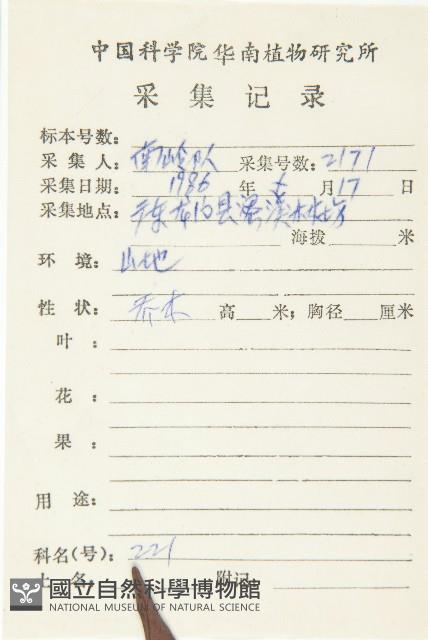 中国科学院华南植物研究所
采集记录
标本号数：
采集人：南岭队 采集号数：2171
采集日期：1986年 月17日
采集地点：广东 县
海拨 米
环境：山地
性状：乔木 高 米；胸径 厘米
叶：
花：
果：
用途：
科名(号)：221
土名： 附记
國立自然科學博物館
NATIONAL MUSEUM OF NATURAL SCIENCE